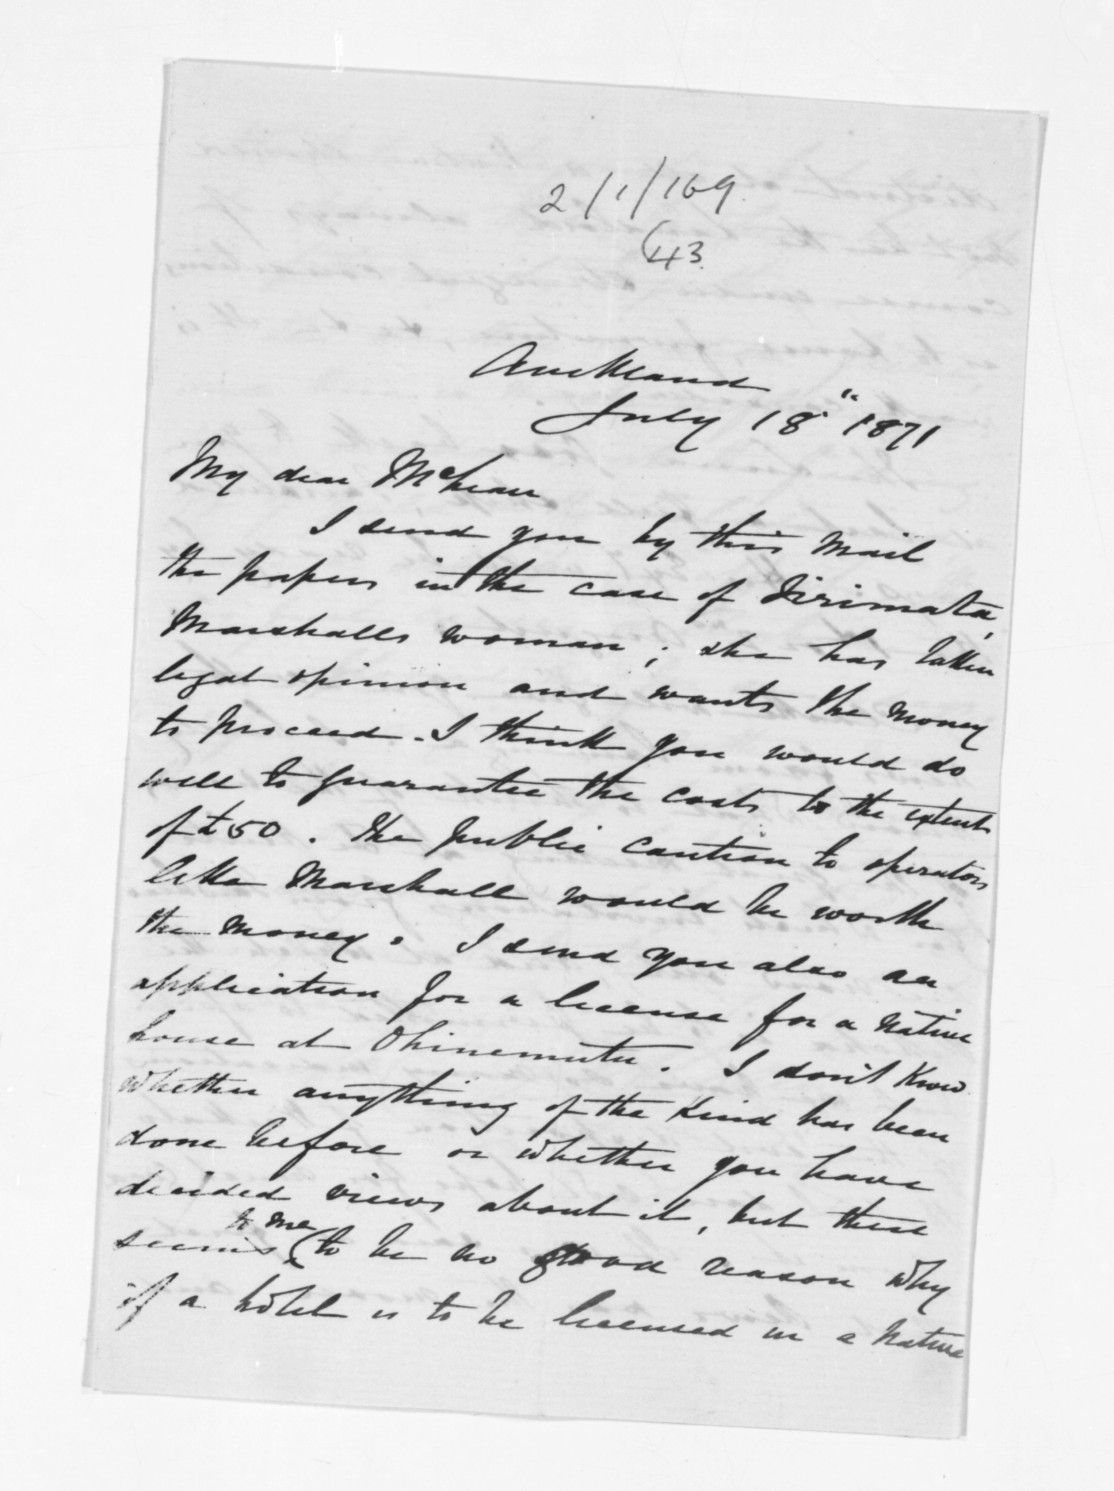 2/1/169.
(43.
Auckland
July 18" 1871
My dear McLean
I send you by this mail
the papers in the case of Tirimata,
Marshalls woman; she has taken
legal opinion and wants the money
to proceed. I think you would do
well to guarantee the costs to the extent
of £50. The public caution to operators
like Marshall would be worth
the money. I send you also an
application for a license for a native
house at Ohinemutu. I don't know
whether anything of the kind has been
done before or whether you have
decided views about it, but there
seems (to me to be no good reason why
if a hotel is to be licensed in a native